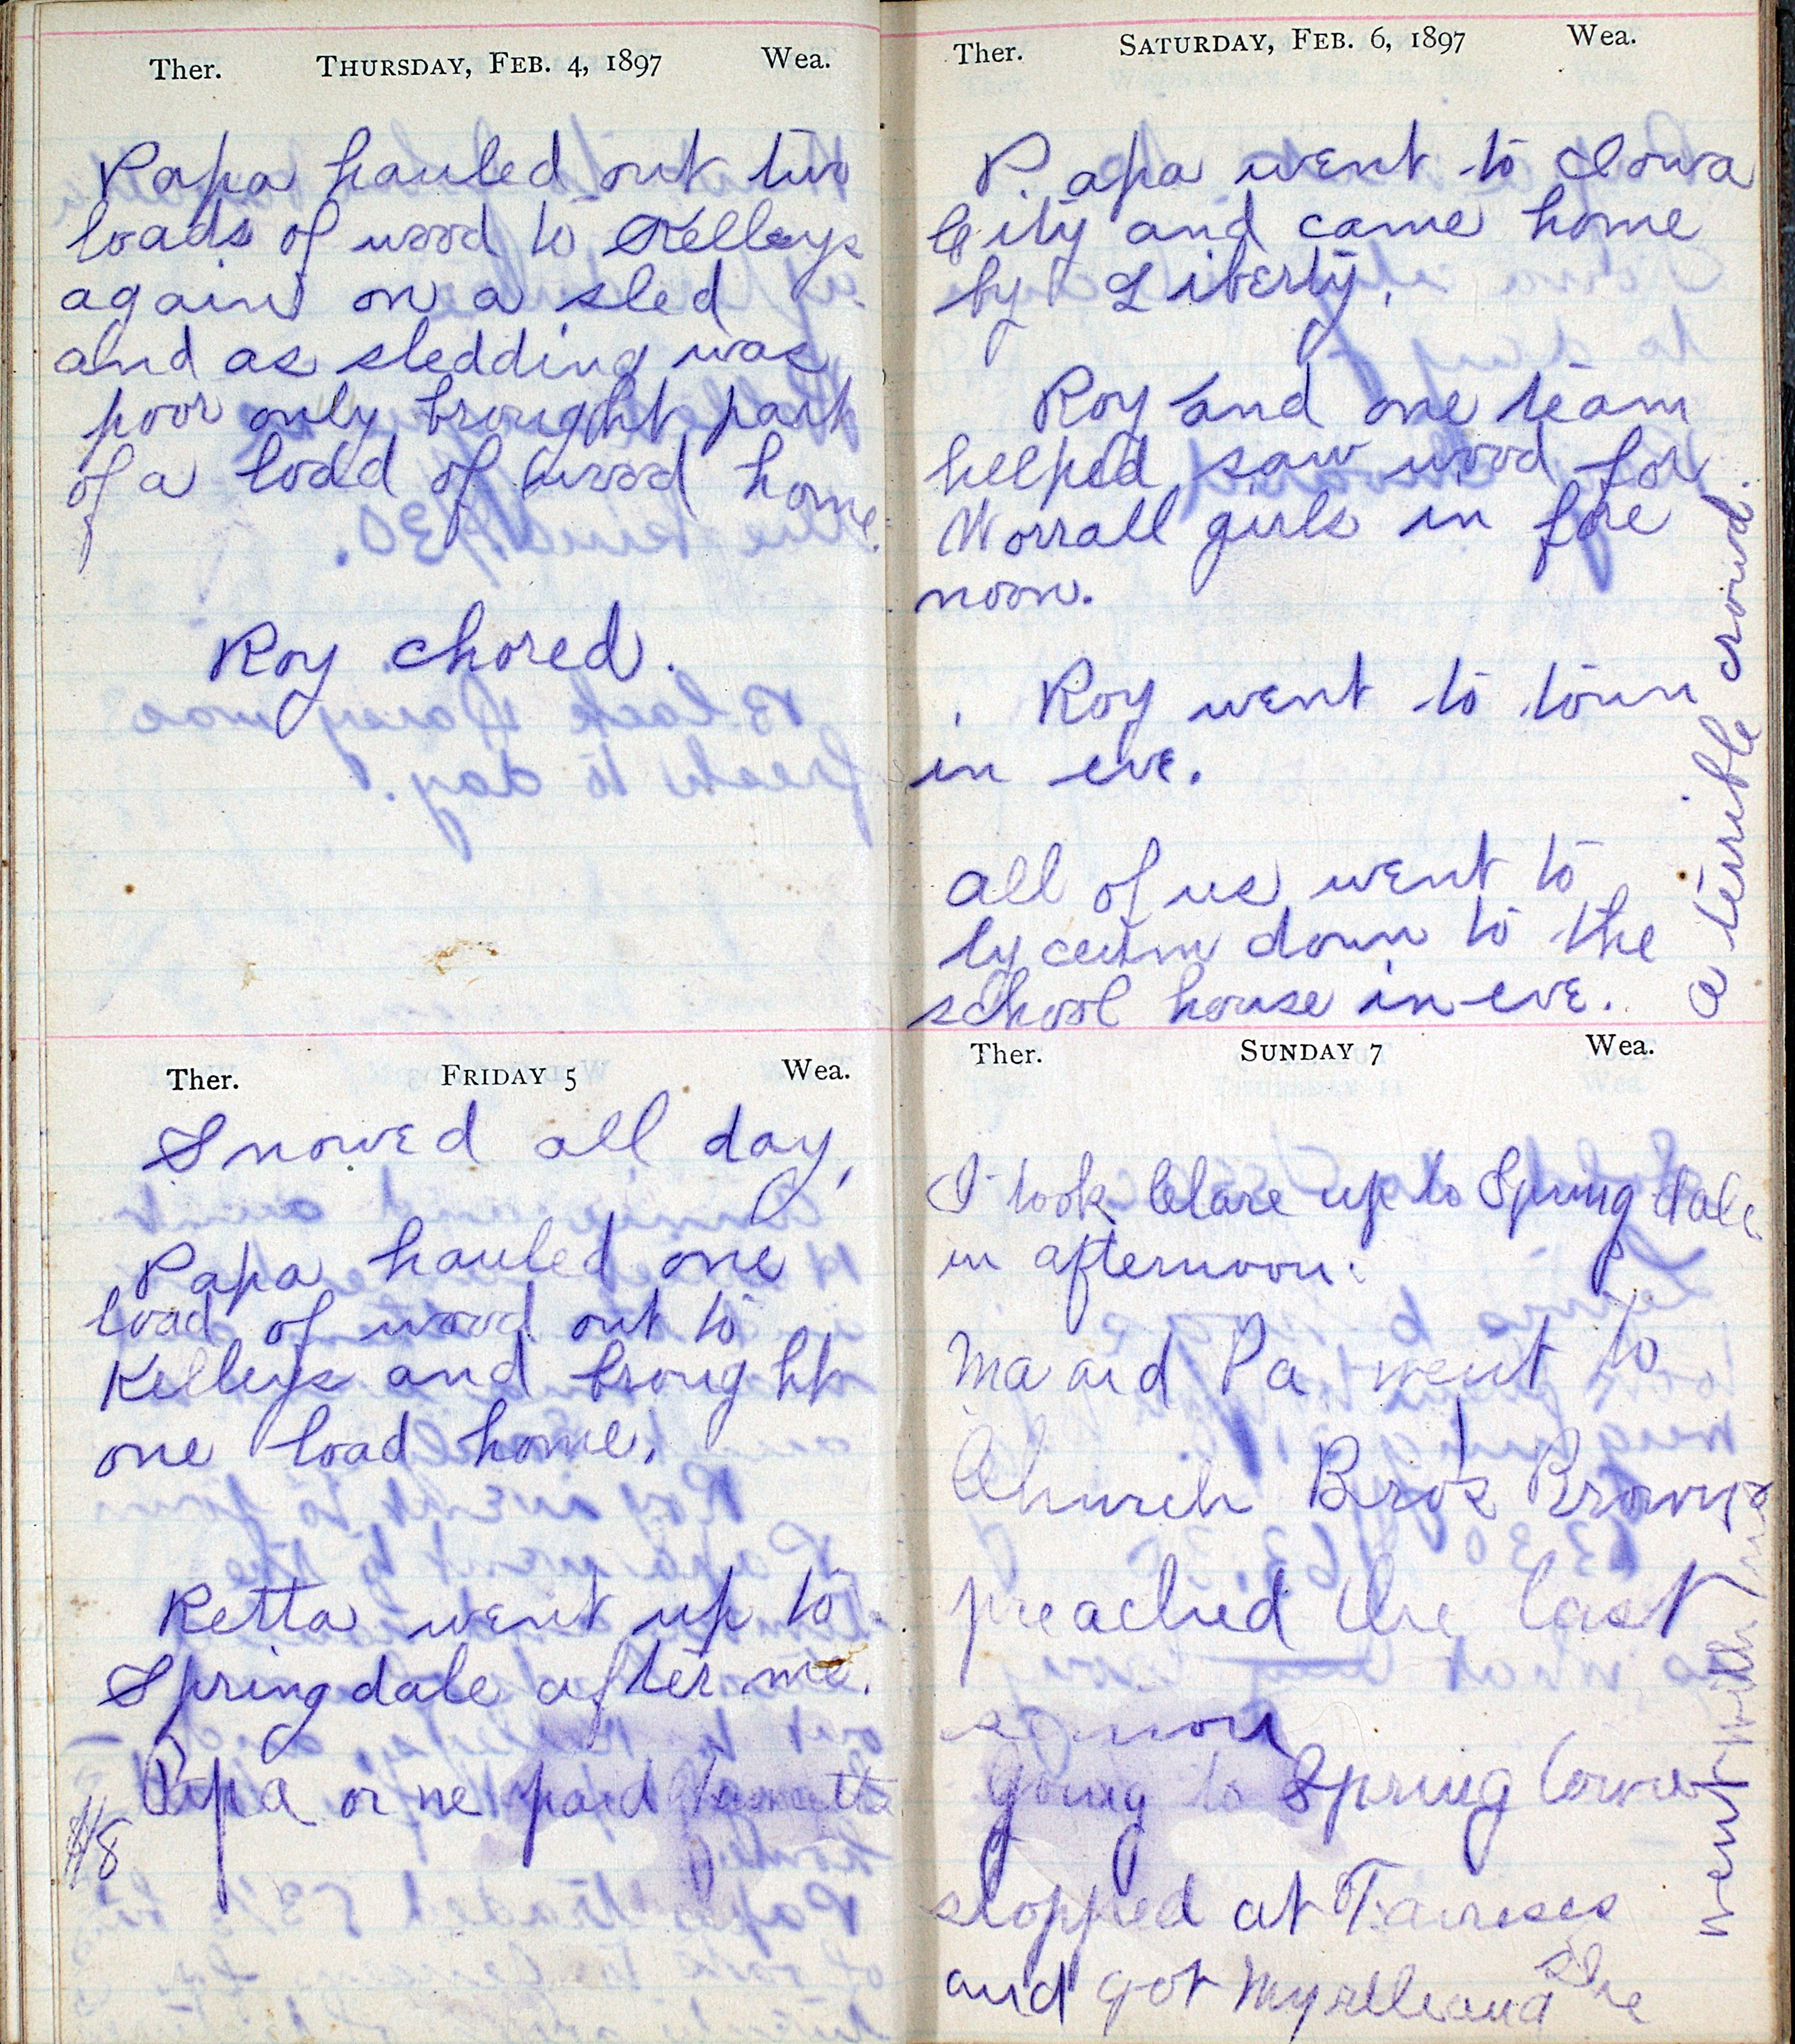 Ther. THURSDAY, FEB. 4, 1897 Wea.
Papa hauled out two
loads of wood to Kelleys
again on a sled
and as sledding was
poor only brought part
of a load of wood home.
Roy chored.
Ther. FRIDAY 5 Wea.
Snowed all day,
Papa hauled one
load of wood out to
Kelleys and brought
one load home.
Retta went up to
Springdale after me.
Papa or me paid
$8
Ther. SATURDAY, FEB. 6, 1897 Wea.
P. apa went to Iowa
City and came home
by Liberty.
Roy and one team
helped saw wood for
Worrall girls in fore
noon.
Roy went to town
in eve.
all of us went to
lyceum down to the
school house in eve.
a terrible crowd.
Ther. SUNDAY 7 Wea.
I took Clare up to Spring dale
in afternoon.
Ma and Pa went to
Church Bro's Browns
preached the last
sermon
Going to Spring
stopped at
and got Myrtle and she
went with me